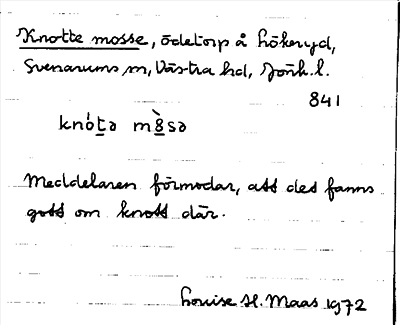 Knotte mosse, ödetorp å Hökeryd,
Svenarums sn, Västra hd, Jönk. l.
841
knót̲ə m8̲̀sə
Meddelaren förmodar, att det fanns
gott om knott där.
Louise H. Maas 1972